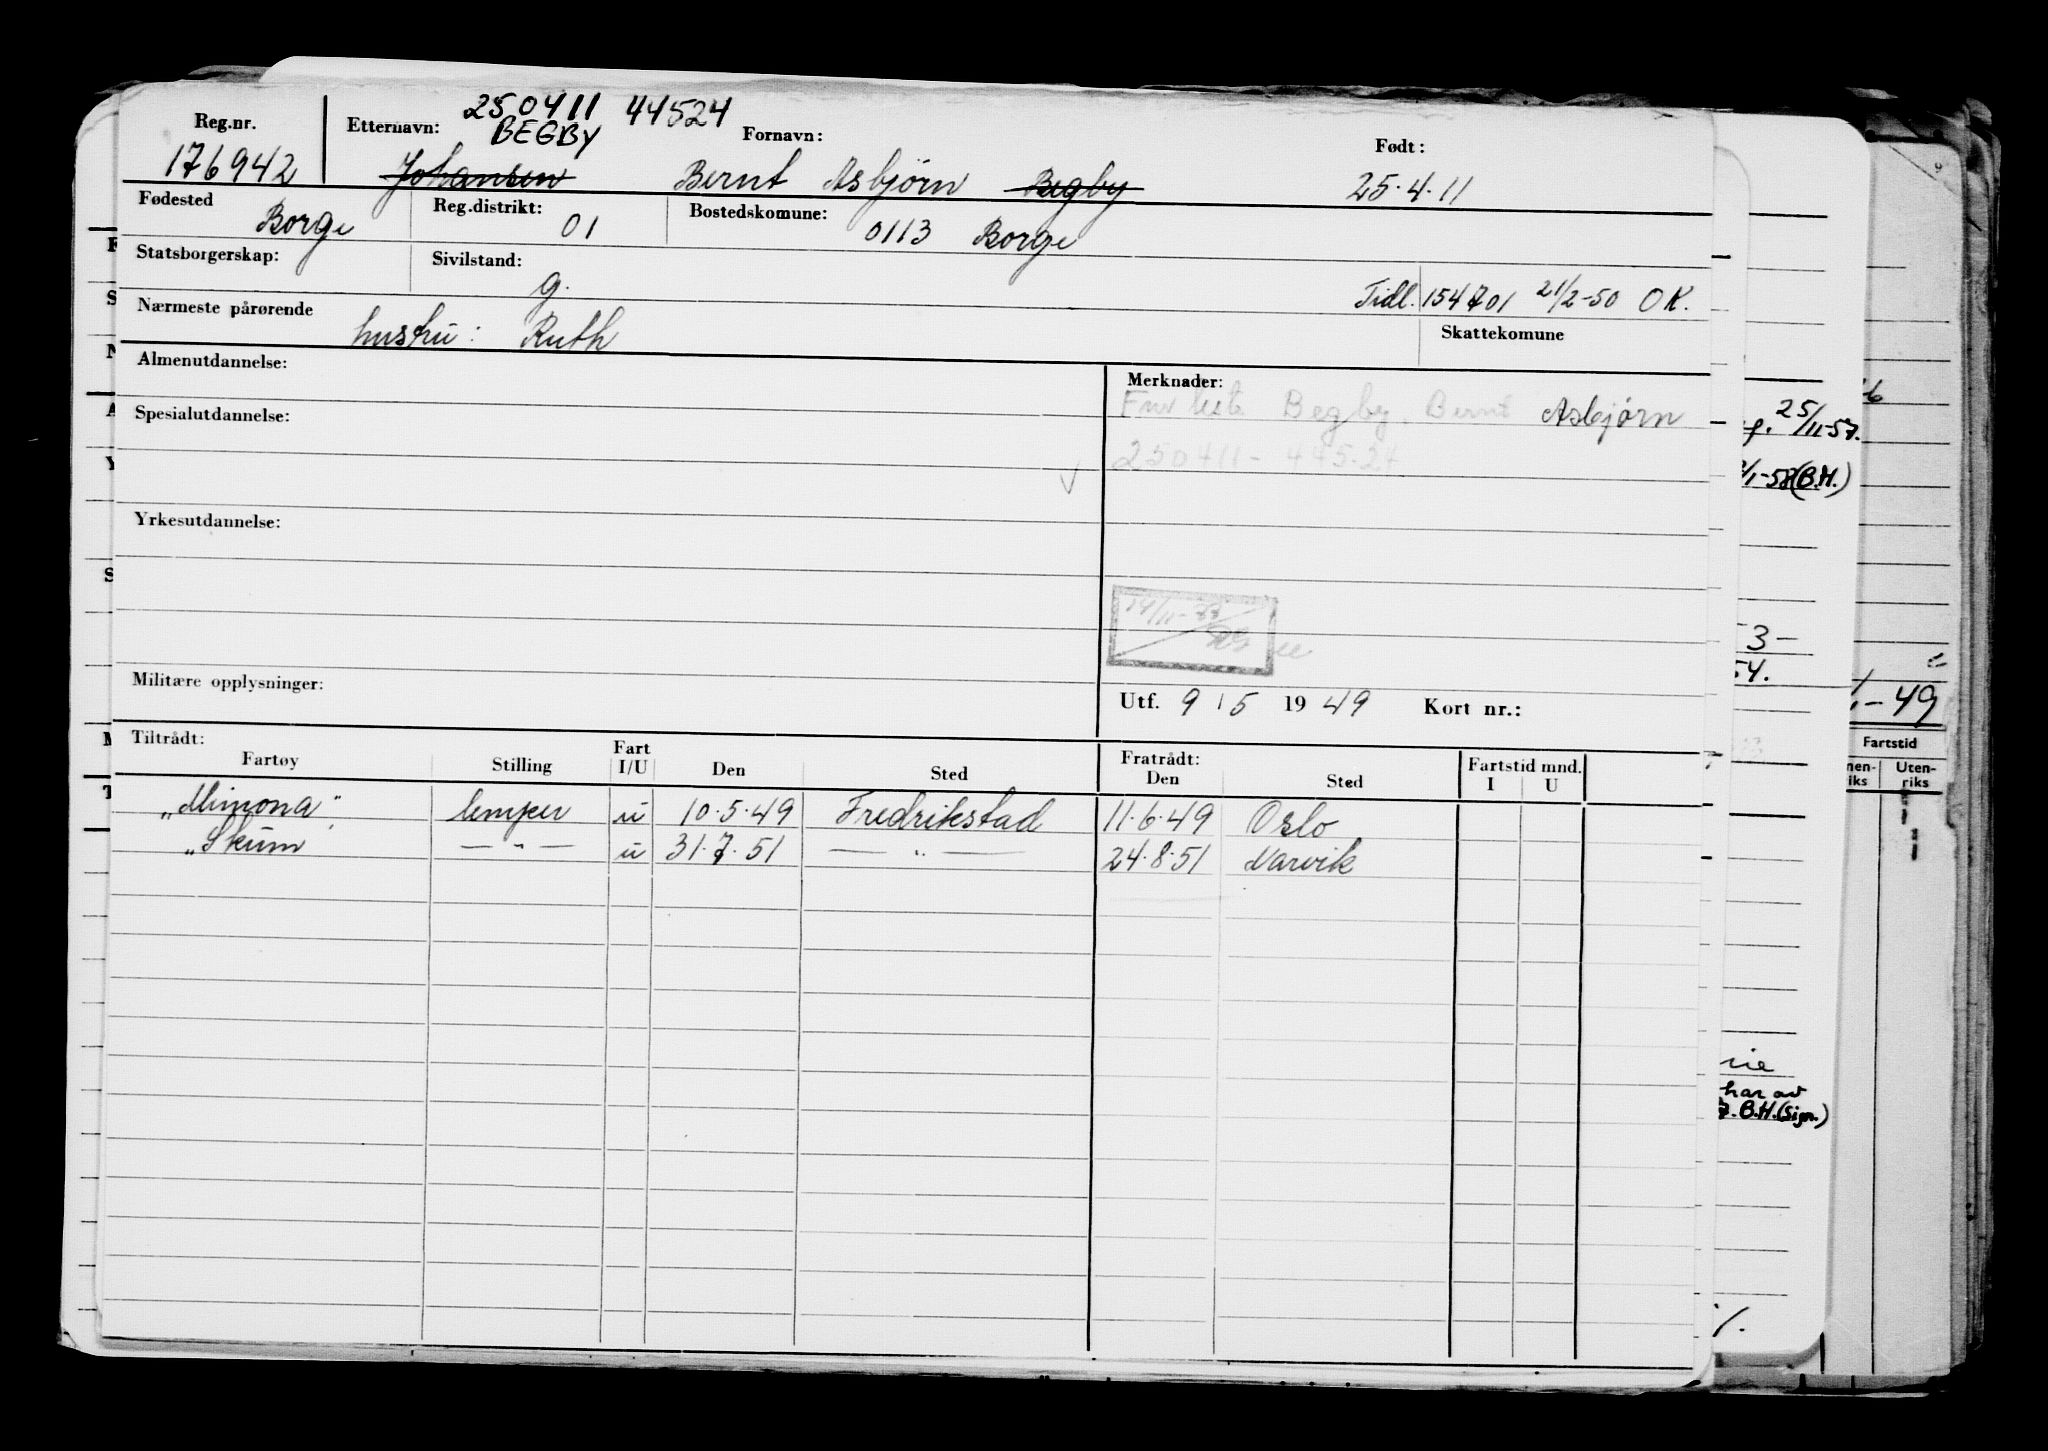 250411 44524
Reg.nr. Etternavn: BEGBY Fornavn: Født:
176942 Johansen Bernt Asbjørn Begby 25.4.11
Fødested Borge Reg.distrikt: 01 Bostedskomune: 0113 Borge
Statsborgerskap: Sivilstand: g. Tidl. 154701 21/2-50 OK.
Nærmeste pårørende hustru: Ruth Skattekomune
Almenutdannelse: Merknader:
Begby, Bernt Asbjørn
Spesialutdannelse:
250411-445.24
Yrkesutdannelse:
Militære opplysninger: Utf. 9/5 1949 Kort nr.:
Tiltrådt: Fratrådt:
Fartøy Stilling Fart I/U Den Sted Den Sted Fartstid mnd. I U
"Mimona" lemper u 10.5.49 Fredrikstad 11.6.49 Oslo
"Skum — " — u 31.7.51 — " — 24.8.51 Narvik
25/11-57.
1-58 (B.H.)
3-
54.
har av
7. B.H. (sign.)
-49
Fartstid
nen-riks Uten-riks